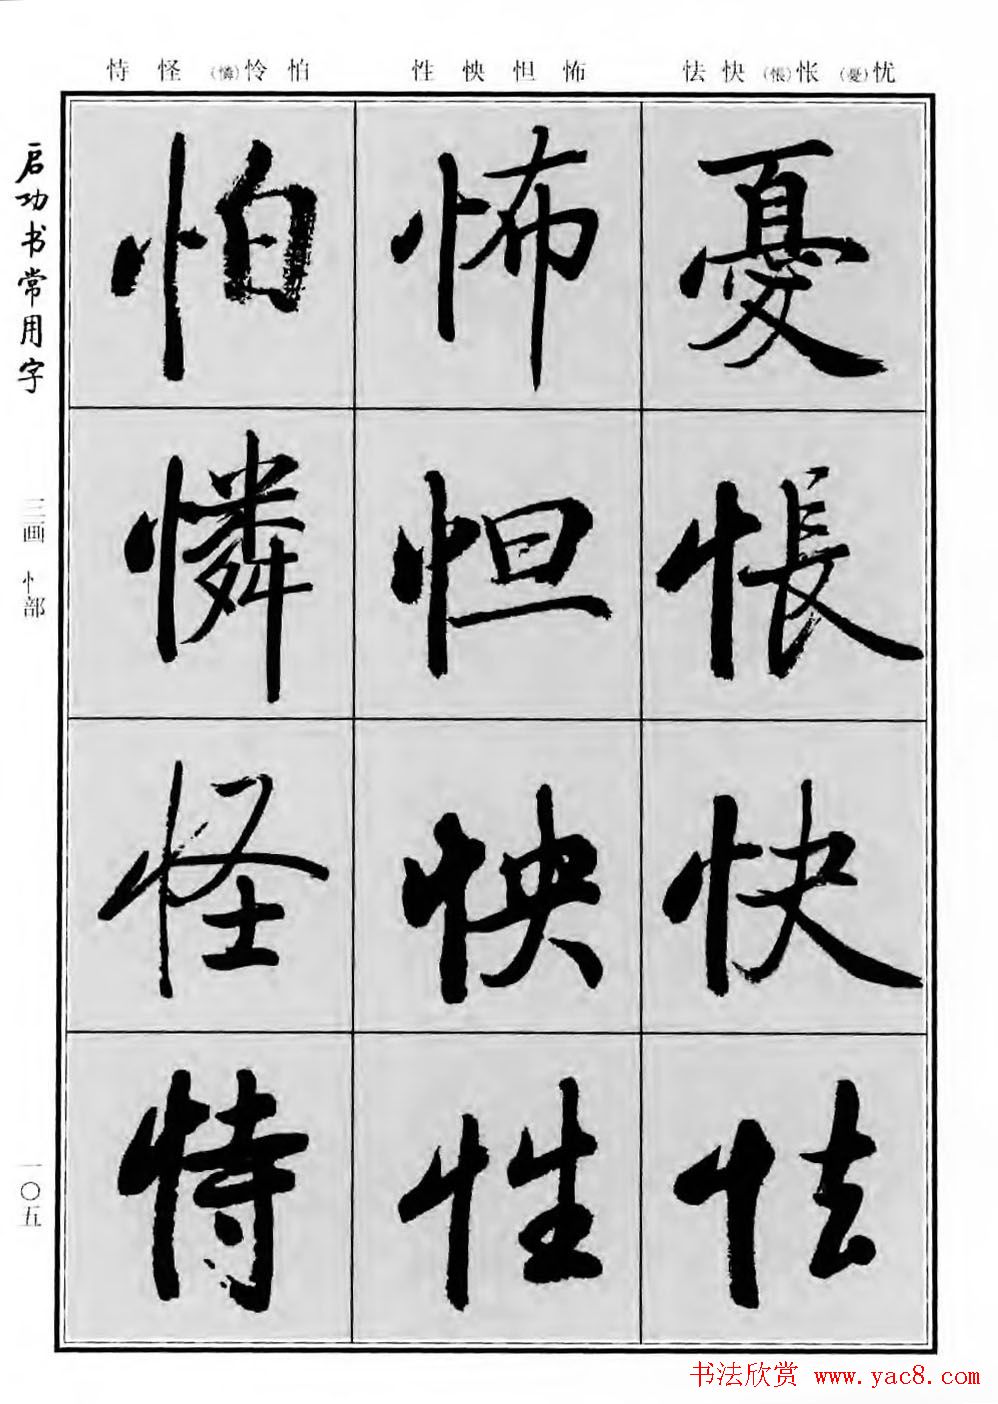 恃 怪 (憐)怜 怕 性 怏 怛 怖 怯 快 (悵)怅 (憂)忧
启功书常用字
三画 忄部
一〇五
憂
悵
快
怯
怖
怛
怏
性
怕
憐
怪
恃
书法欣赏 www.yac8.com